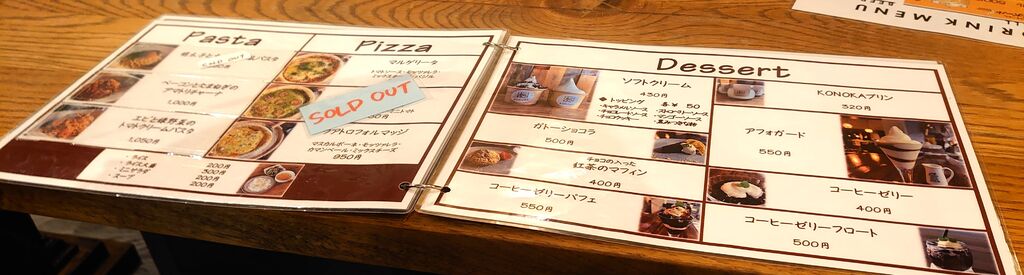 Pasta
SOLD OUT
パスタ
ベーコンとたまねぎの
アマトリチャーナ
1,000円
エビと緑野菜の
トマトクリームパスタ
1,050円
ライス 200円
ライス大盛 300円
ミニサラダ 200円
スープ 200円
Pizza
マルゲリータ
トマトソース・モッツァレラ・
SOLD OUT
クアトロフォルマッジ
マスカルポーネ・モッツァレラ・
カマンベール・ミックスチーズ
950円
Dessert
ソフトクリーム
430円
◆トッピング 各¥50
・キャラメルソース
・チョコレートソース
・チョコクッキー
・ストロベリーソース
・マンゴーソース
ガトーショコラ
500円
チョコの入った
紅茶のマフィン
400円
コーヒーゼリーパフェ
550円
KONOKAプリン
320円
アフォガード
550円
コーヒーゼリー
400円
コーヒーゼリーフロート
500円
DRINK MENU
BEER